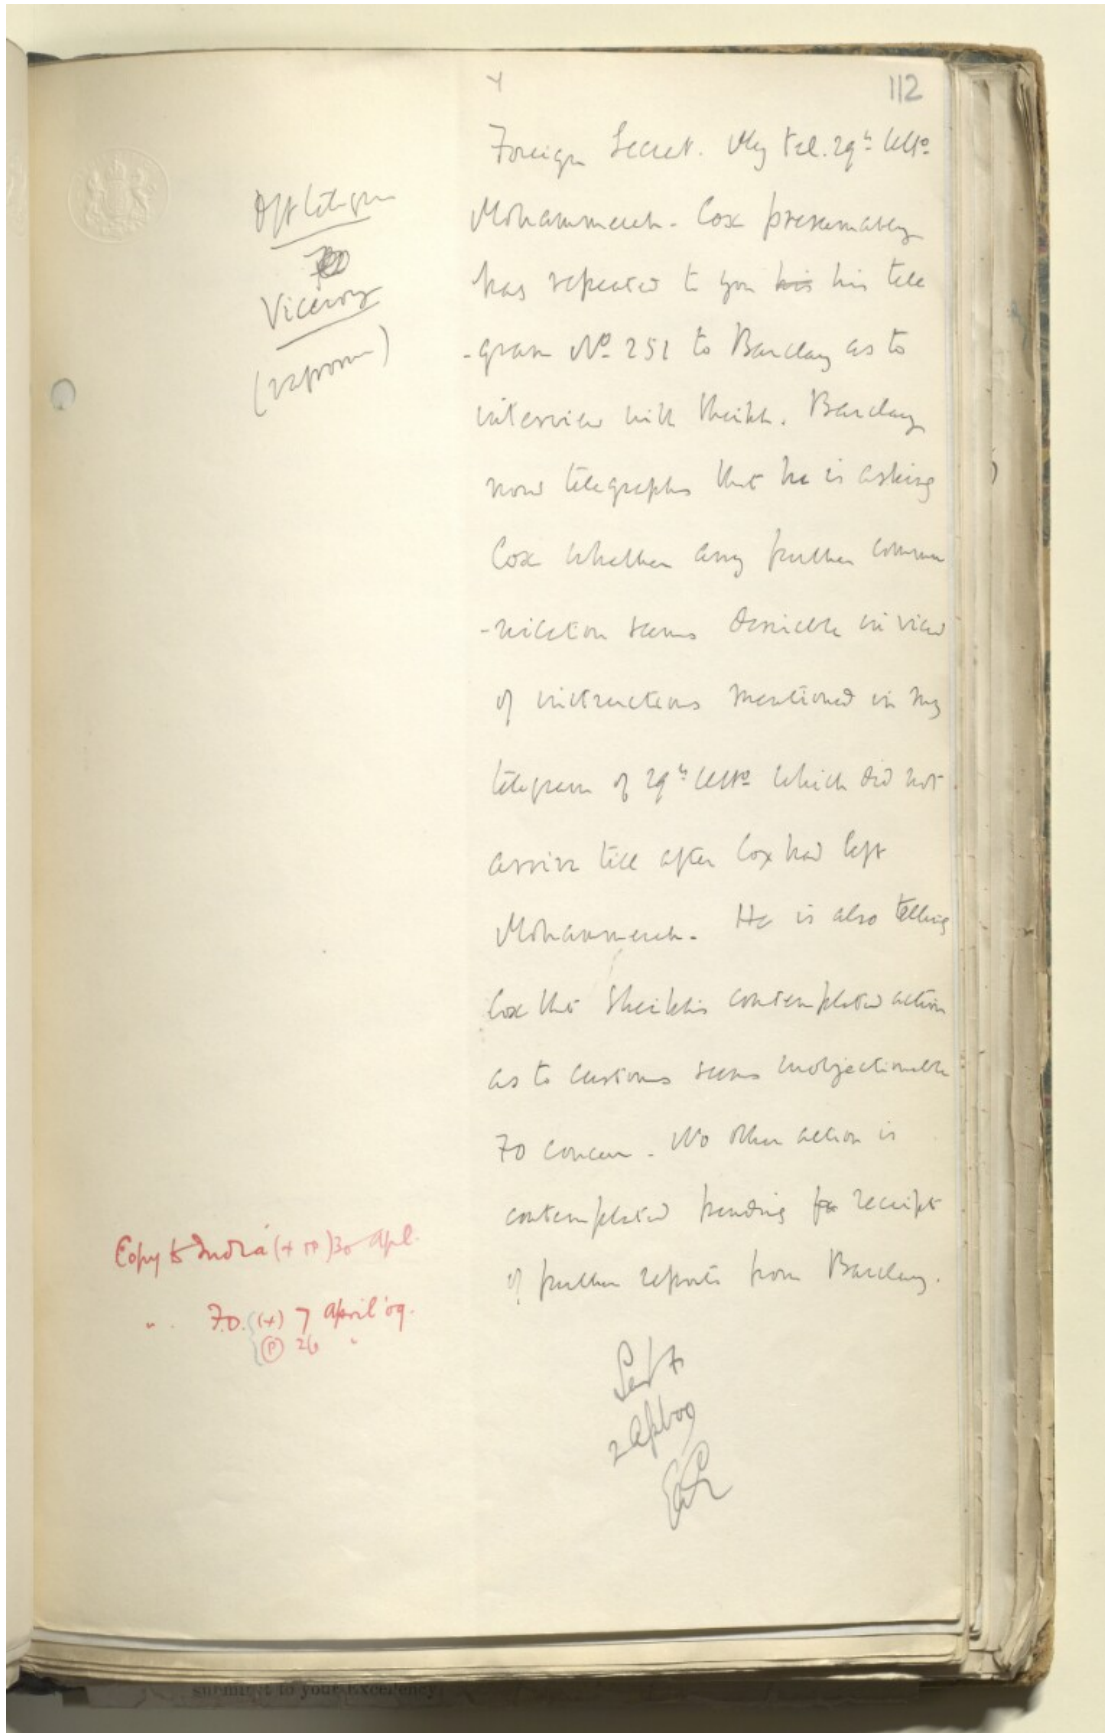 112
Dft telegram
Viceroy
Foreign Secret. My tel. 29th ulto
Mohammerah. Cox presumably
has repeated to you his his tele
-gram No 251 to Barclay as to
interview with Sheikh. Barclay
now telegraphs that he is asking
Cox whether any further commu
-nication seems desirable in view
of instructions mentioned in my
telegram of 29th ulto which did not
arrive till after Cox had left
Mohammerah. He is also telling
Cox that Sheikh's contemplated action
as to customs seems unobjectionable
FO concur. No other action is
contemplated pending receipt
of further reports from Barclay.
Copy to India (+ P) 30 Apl.
" F.O. (+) 7 April '09.
(P) 26 "
Sent
2 Apl 09
submitted to your Excellency